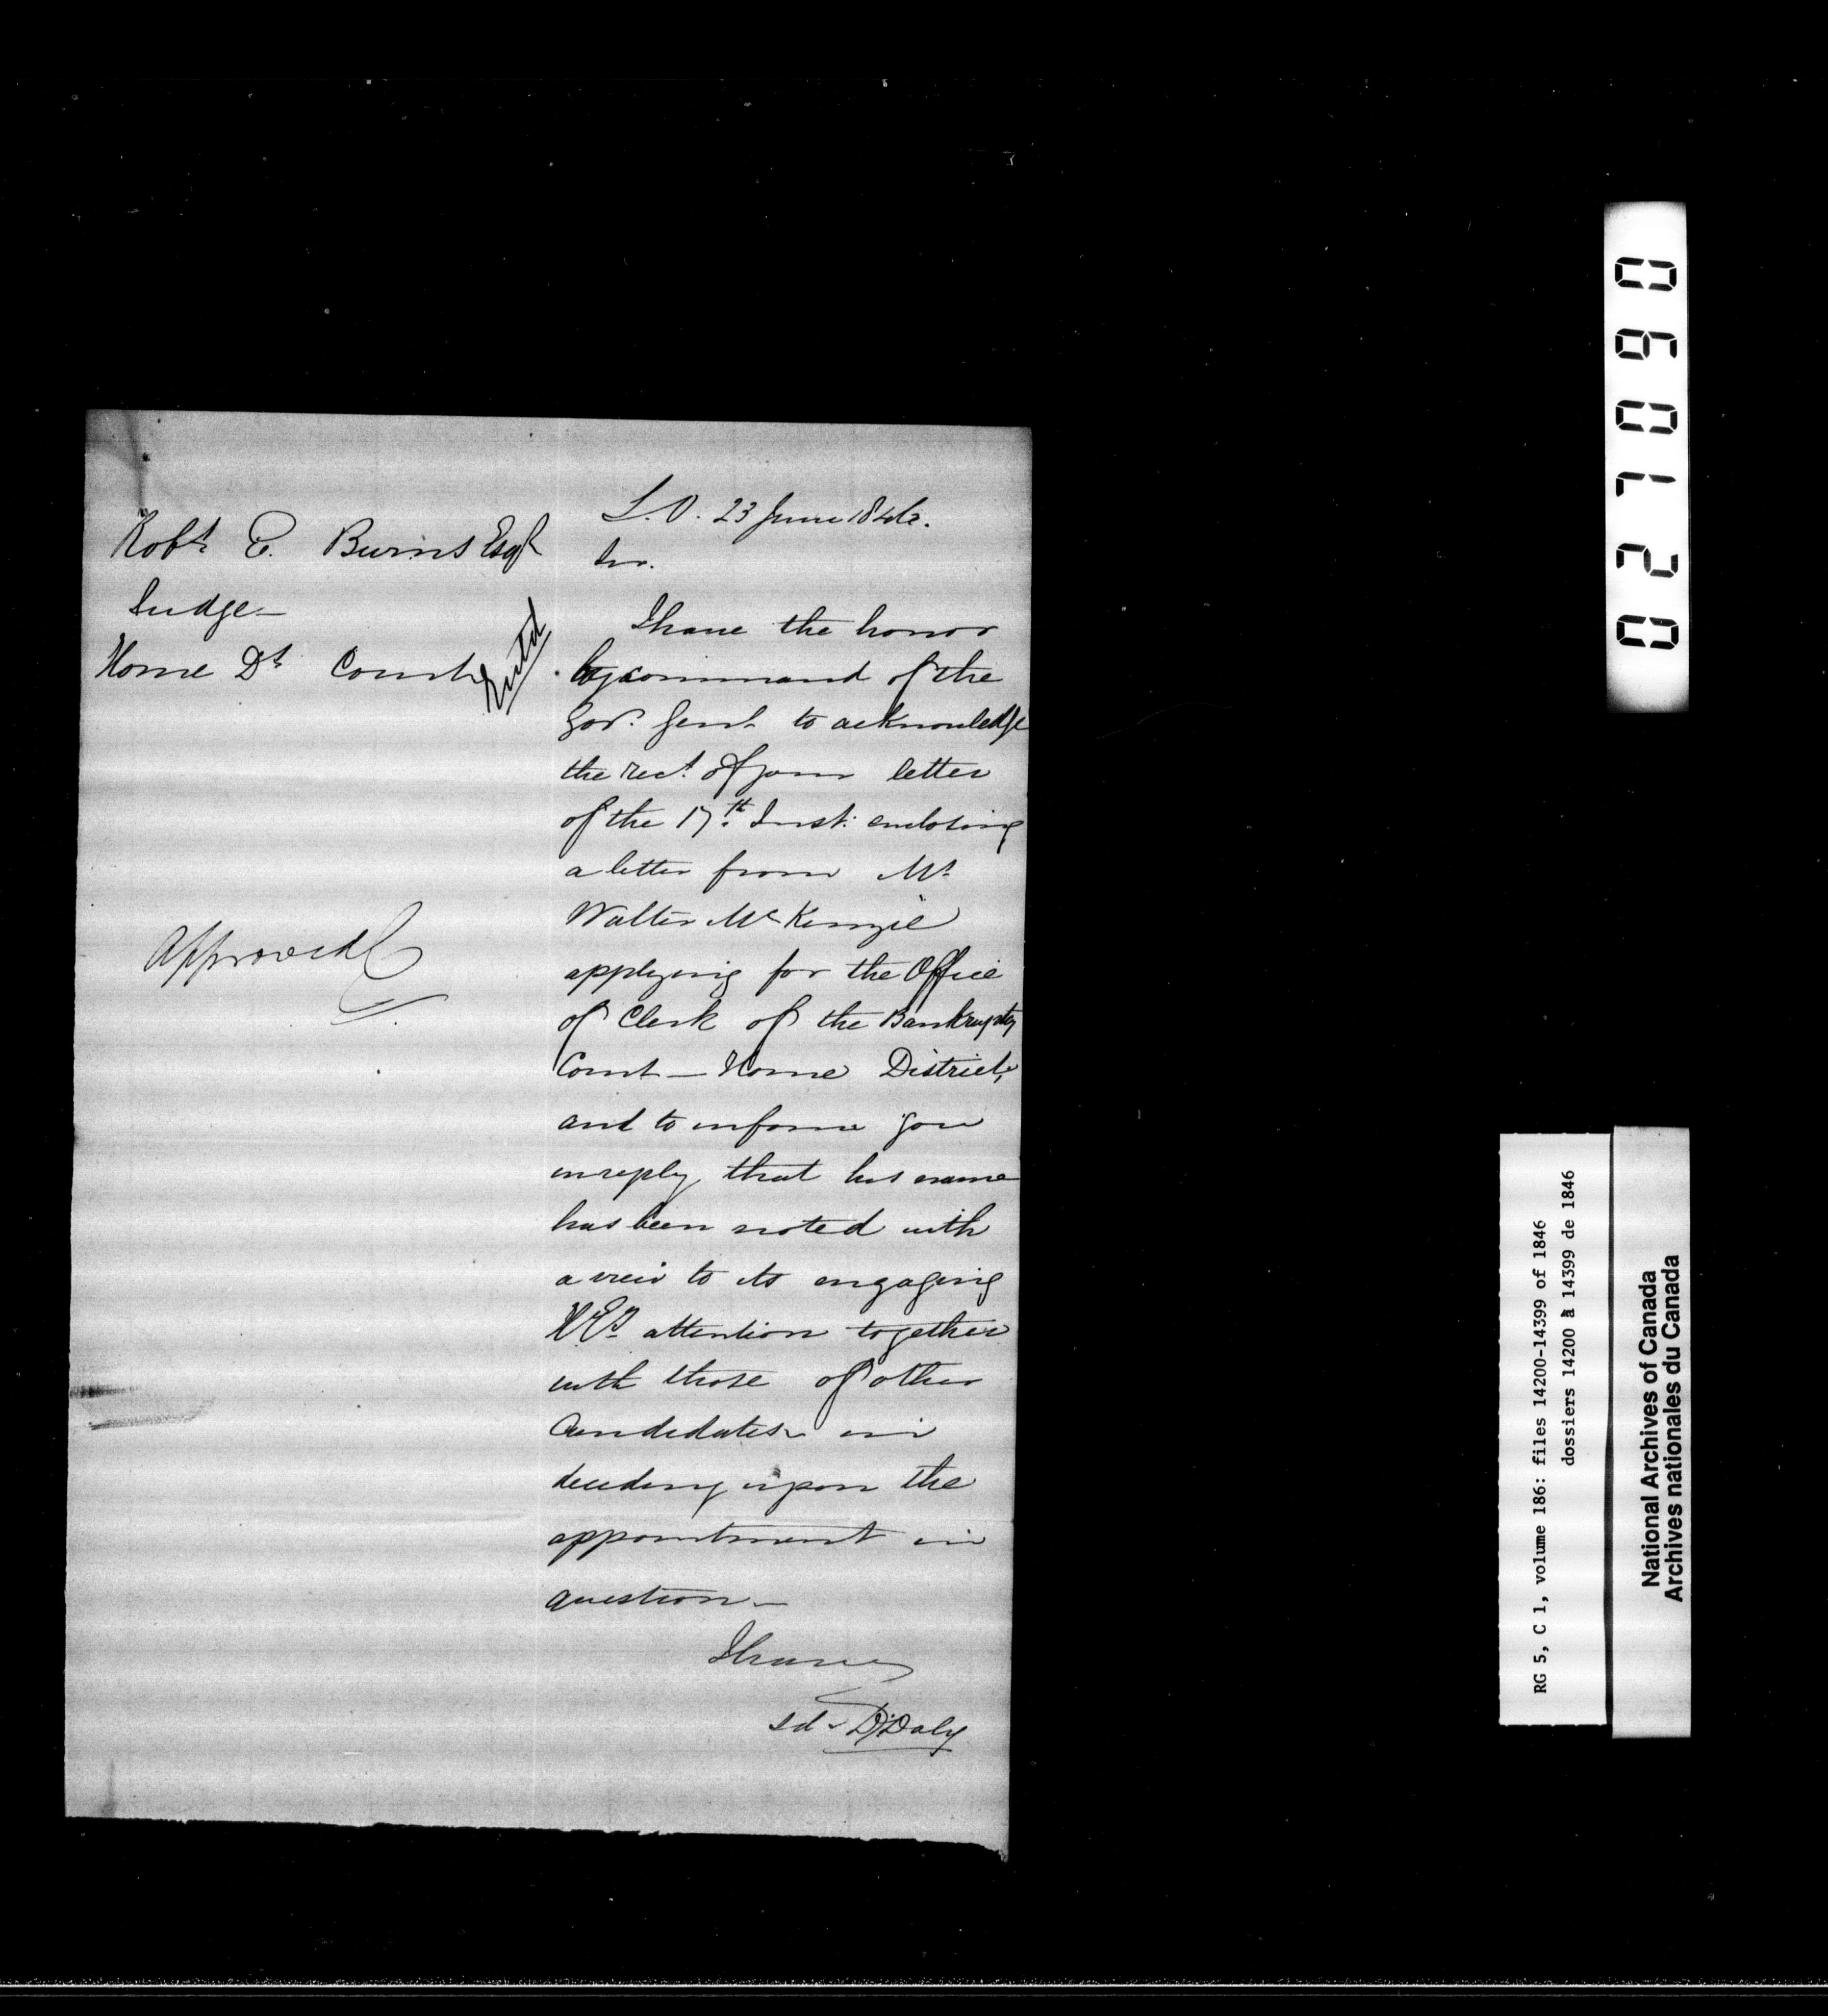 S.O. 23 June 1846.
Robt. E. Burns Esqr
Judge
Home Dt. Court
Entd
Sir.
I have the honor
by command of the
Gov. Genl. to acknowledge
the rect. of your letter
of the 17th. Inst. enclosing
a letter from Mr
Walter McKenzie
applying for the Office
of Clerk of the Bankruptcy
Court — Home District,
and to inform you
in reply, that his name
has been noted with
a view to its engaging
H.E's attention together
with those of other
Candidates in
deciding upon the
appointment in
question —
Approved C
I have
sd - D. Daly
021090
RG 5, C 1, volume 186: files 14200-14399 of 1846
dossiers 14200 à 14399 de 1846
National Archives of Canada
Archives nationales du Canada